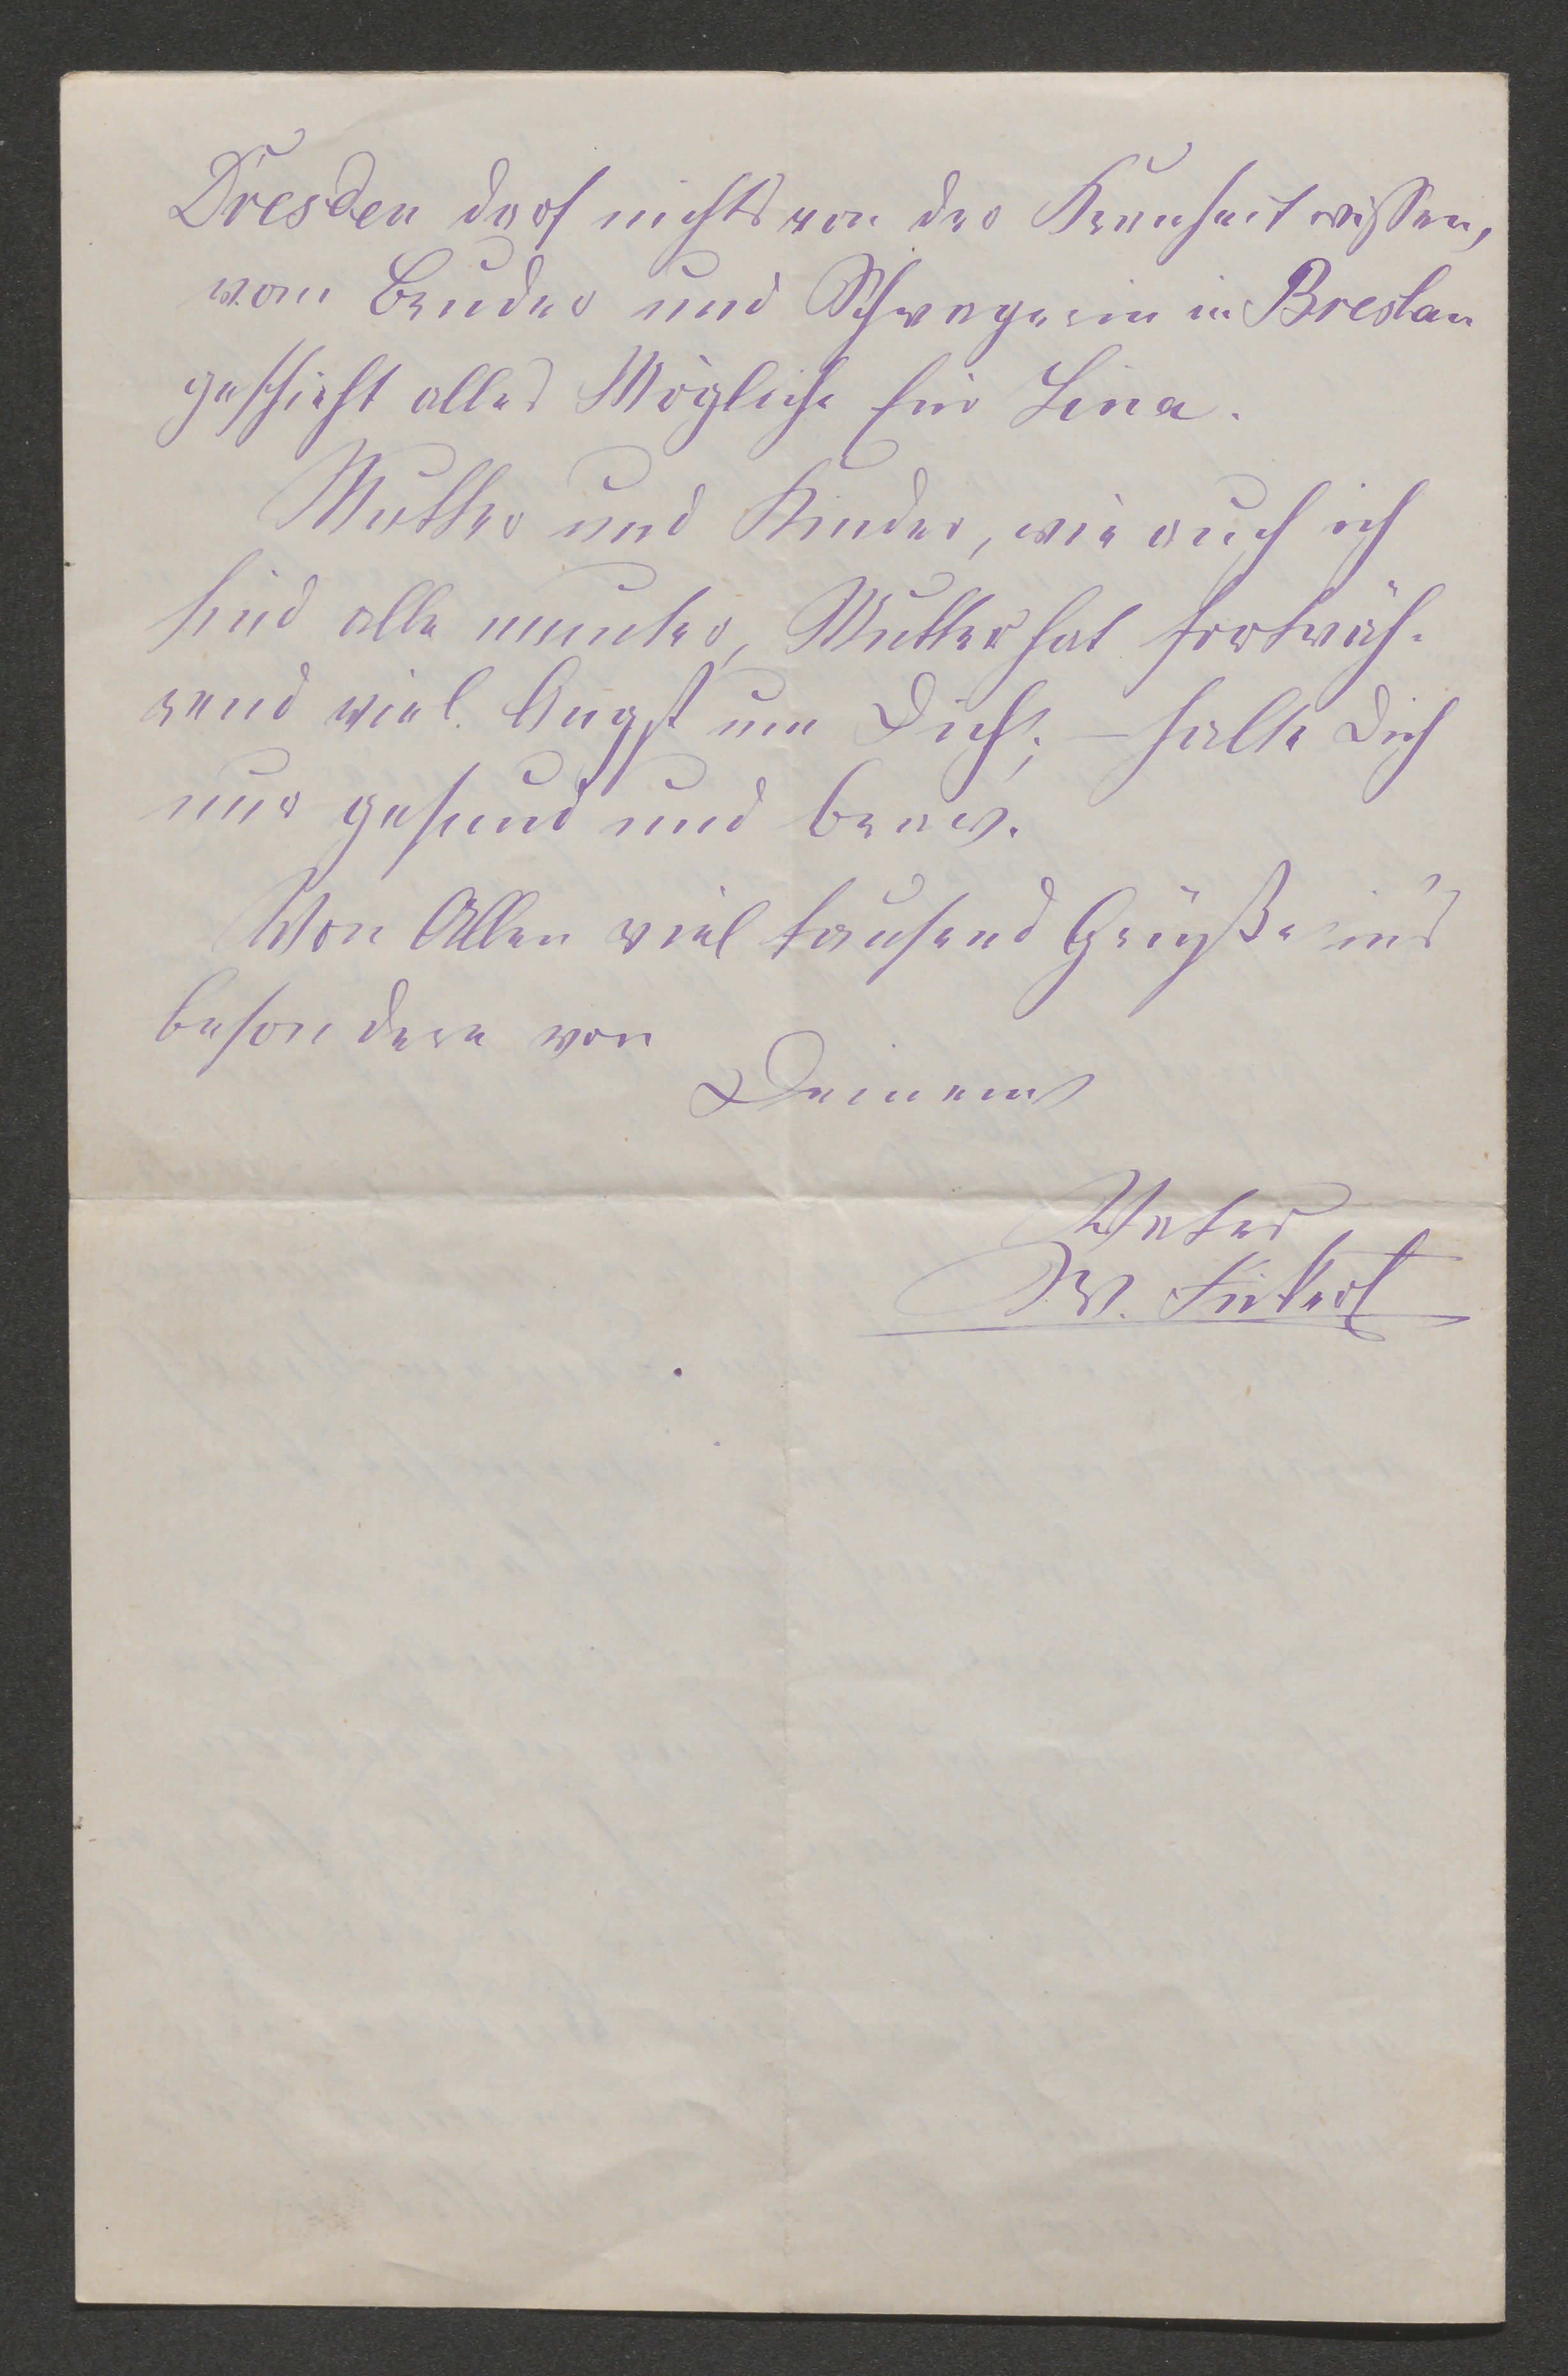 Dresden darf nichts von der Krankheit wissen,
vom Bruder und Schwägerin in Breslau
geschieht alles Mögliche für Lina.
Mutter und Kinder, wie auch ich
sind alle munter, Mutter hat fortwäh-
rend viel Angst um Dich; – halte Dich
nur gesund und brav.
Von Allen viel tausend Grüße ins
besondere von
Deinem
Vater
W.